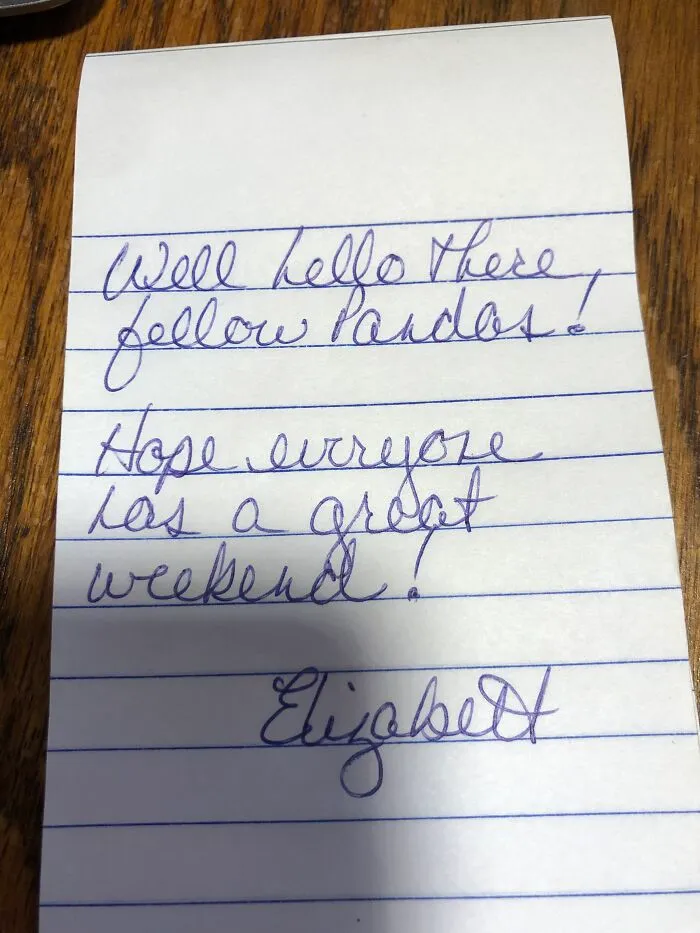 Well hello there,
fellow Pandas!
Hope everyone
has a great
weekend!
Elizabeth